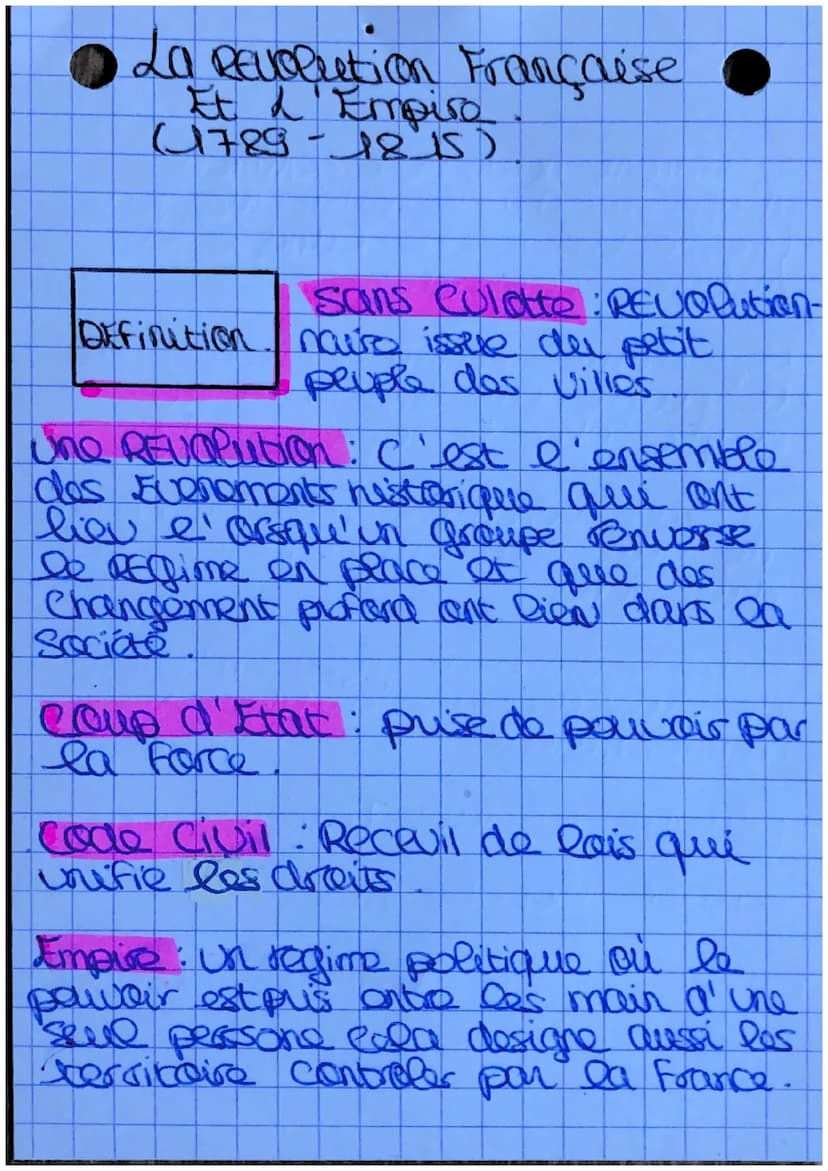 La REVOLution Française
Et L'Empire.
(1789-1815).
DEfinition.
Sans Culotte : REVOlution-
naire issue du petit
peuple des villes.
Une REVOlution : C'est l'ensemble
des Evenements historique qui ont
lieu l'orsqu'un groupe renverse
le REGime en place et que des
Changement pofond ont lieu dans la
Société.
Coup d'Etat : prise de pouvoir par
la force.
Code Civil : Receuil de lois qui
unifie les droits.
Empire : un regime politique où le
pouvoir est pris entre les main d'une
seule persone cela designe aussi les
territoire controler par la France.